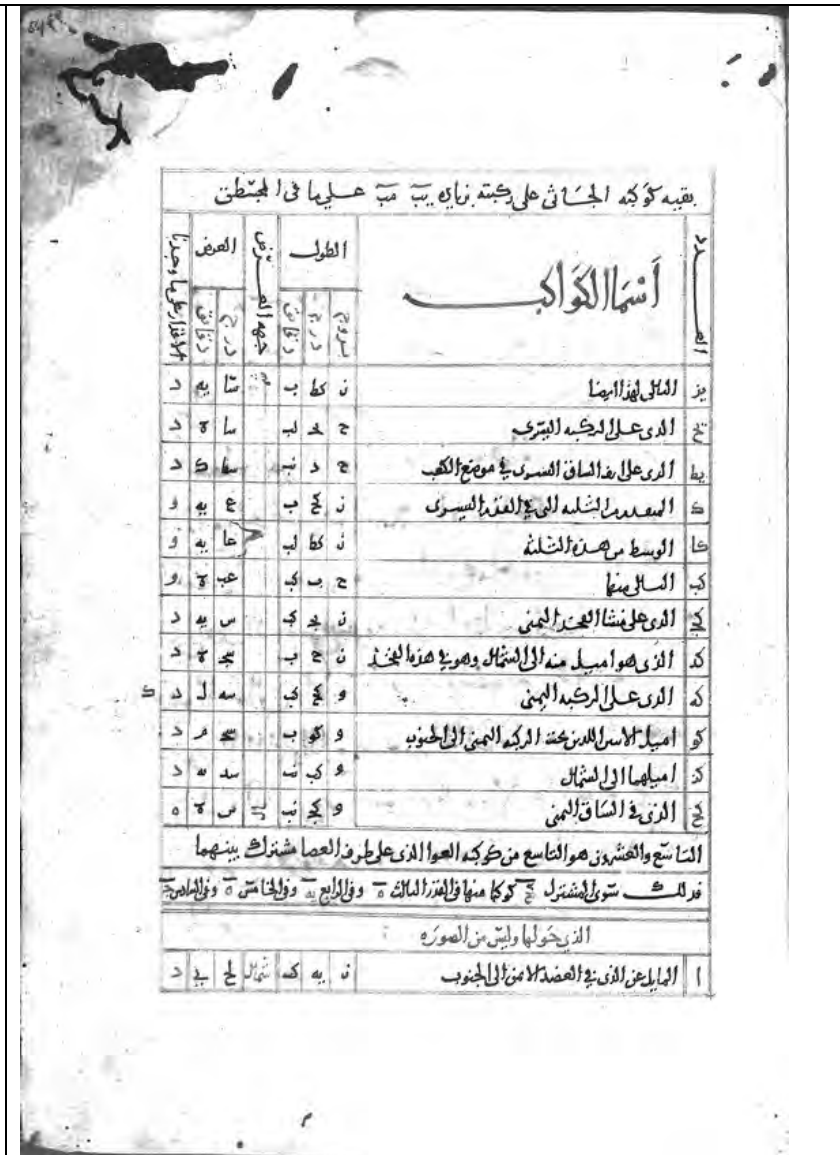 بقيه كوكبه الجاثي على ركبته بزياده يب مب على ما في المجسطي
العدد
أسما الكواكب
الطول
بروج
درج
دقائق
جهه العرض
العرض
درج
دقائق
الاقدار على ما وجدنا
يز التالي لهذا ايضا ز كط ب سا يه د
يح الذي على الركبه اليسرى ح لب سا ة د
يط الذي على الساق اليسرى في موضع الكعب ح د نب سط ك د
ك المتقدم من الثلثه التي في القدم اليسرى ز كح ب ع يه و
كا الوسط من هذه الثلثه ز كط لب عا يه و
كب التالي منها ح ب كب عب ة و
كج الذي على منشا الفخذ اليمنى ز يج كب س يه د
كد الذي هو اميل منه الى الشمال وهو في هذه الفخذ ز ح ب سج ة د
كه الذي على الركبه اليمنى و كح كب سه ل د ك
كو اميل الاثنين اللذين تحت الركبه اليمنى الى الجنوب و كو ب سج م د
كز اميلهما الى الشمال و كب نب سد يه د
كح الذي في الساق اليمنى و كح نب س ة ه
التاسع والعشرون هو التاسع من كوكبه العوا الذي على طرف العصا مشترك بينهما
فذلك سوى المشترك كح كوكبا منها في القدر الثالث ه وفي الرابع يه وفي الخامس ه وفي السادس ج
الذي حولها وليس من الصوره
ا المايل عن الذي في العضد الايمن الى الجنوب ز يه كه شمال لح ي د